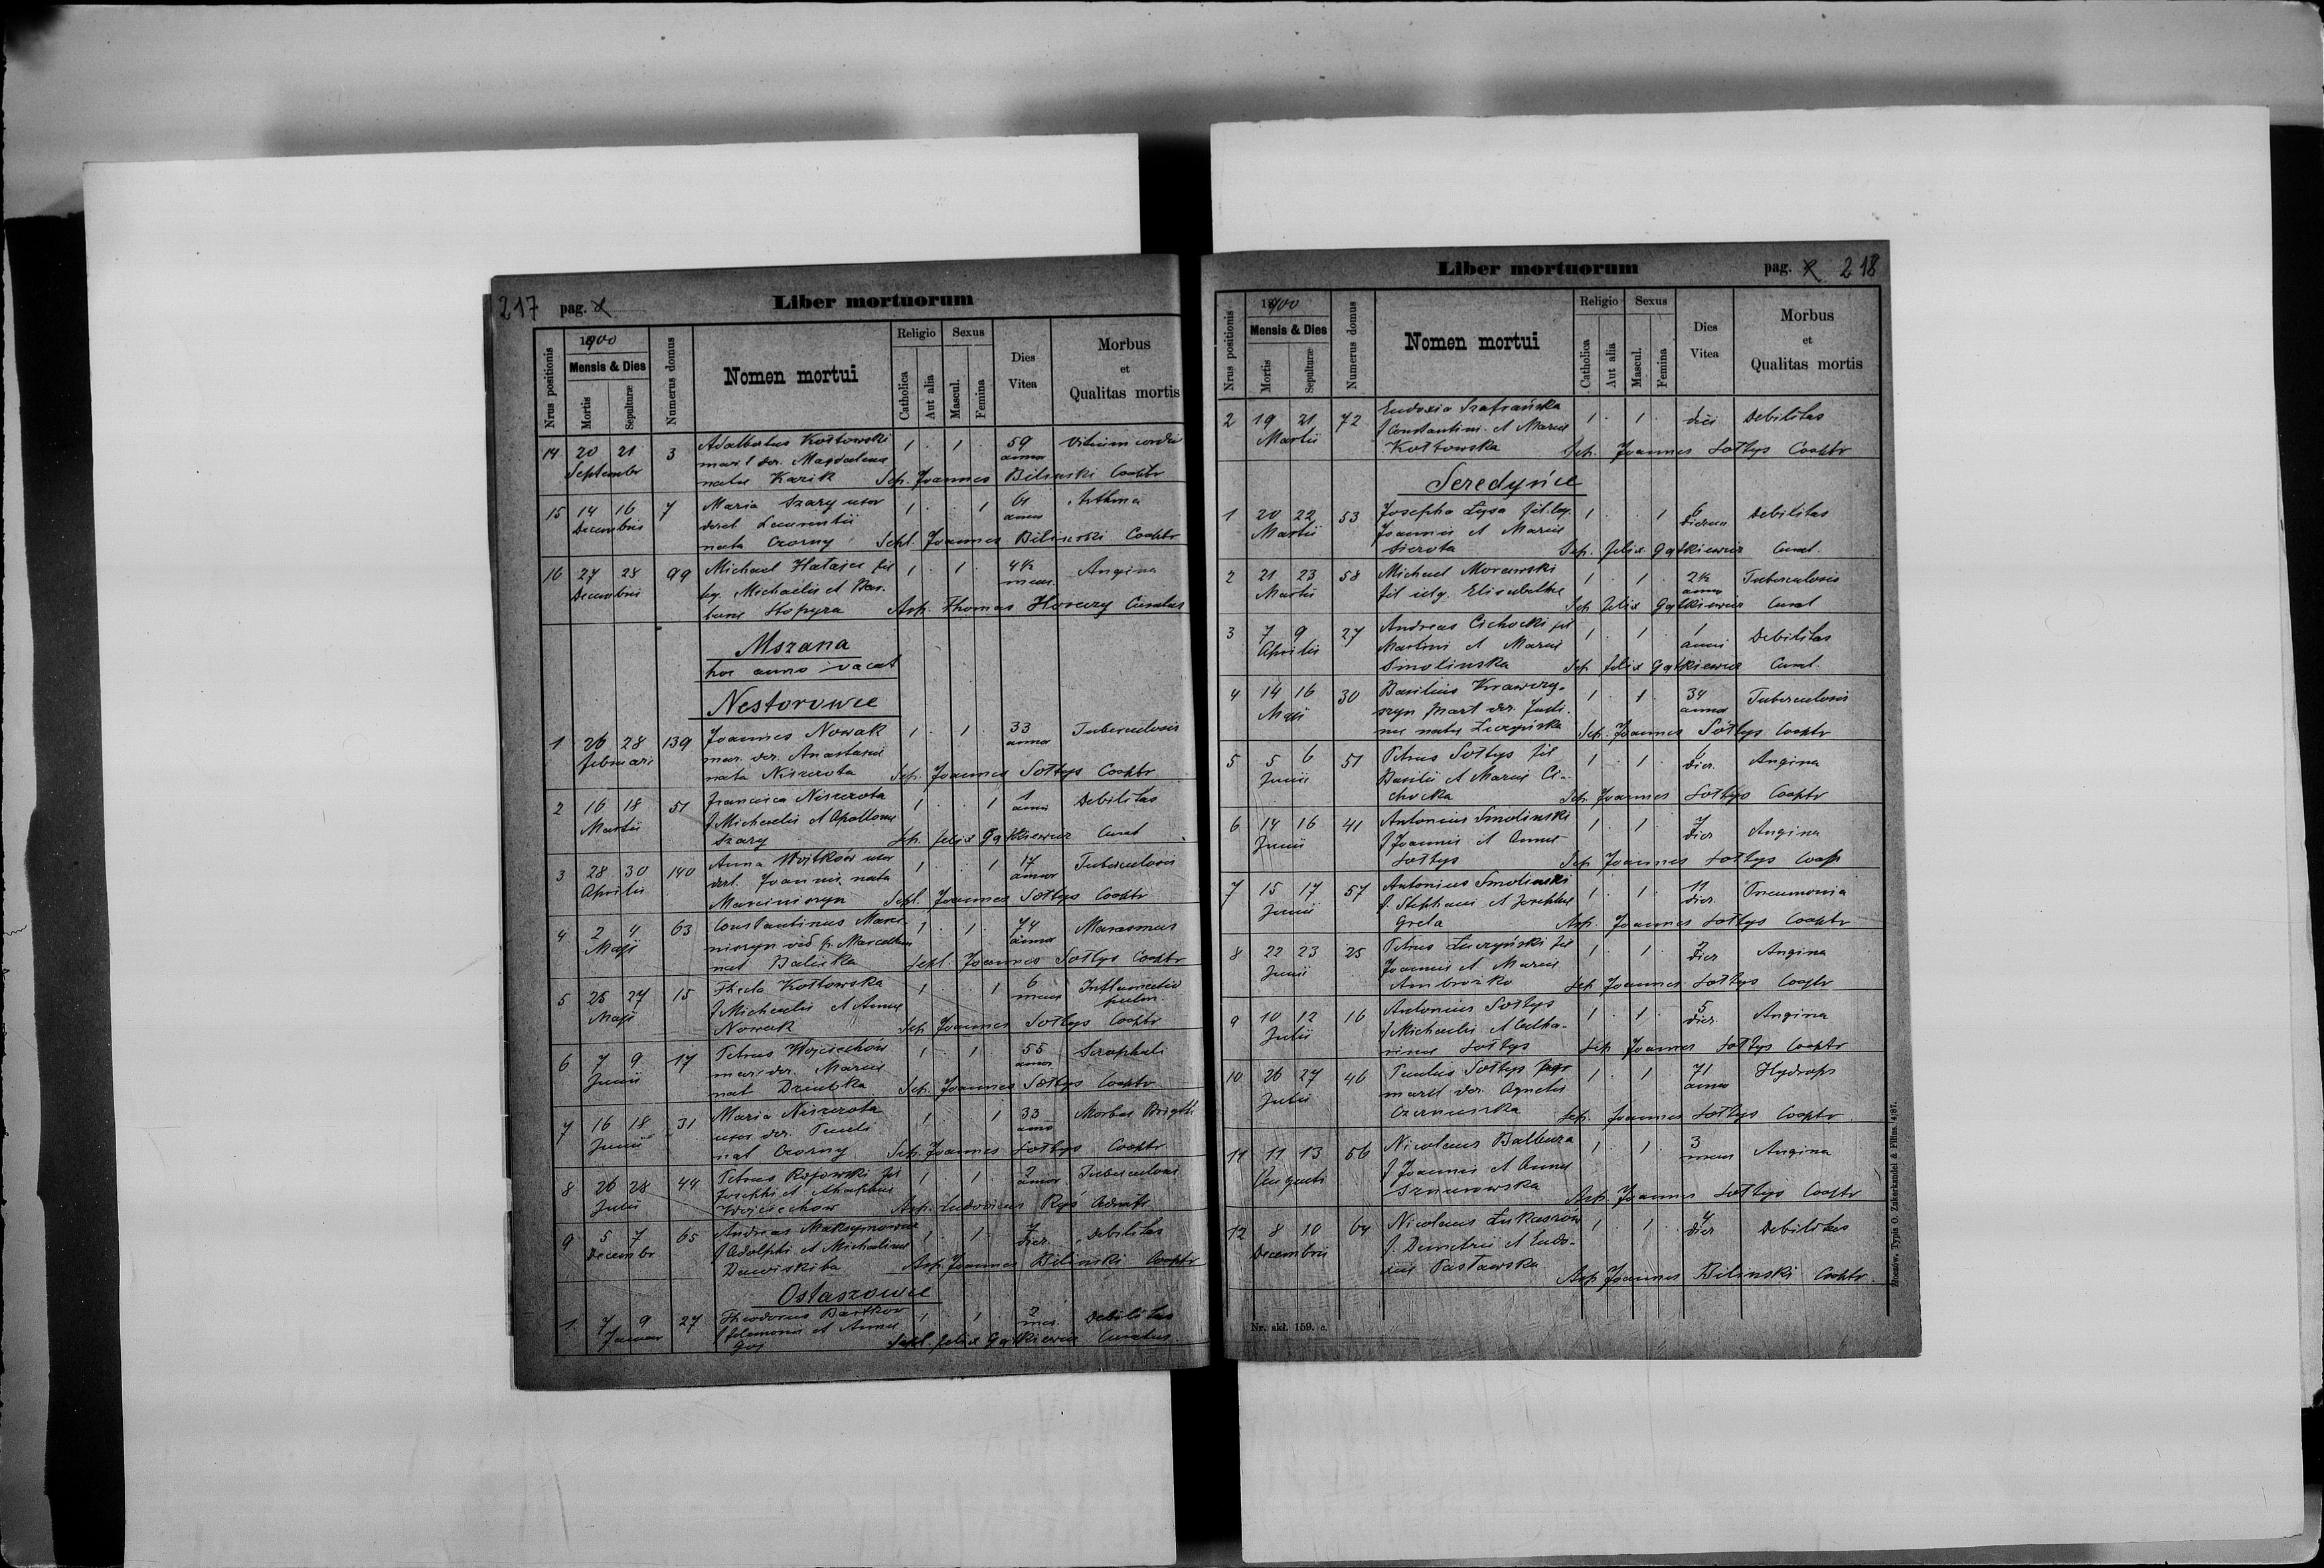 217 pag.
Liber mortuorum
Nrus positionis
1900
Mensis & Dies
Mortis
Sepulturæ
Numerus domus
Nomen mortui
Religio
Catholica
Aut alia
Sexus
Mascul.
Femina
Dies Vitea
Morbus et Qualitas mortis
14 20 21 3 Adalbertus Kostowski 1 1 59 Vitium cordis
Septembr mart der. Magdalena annor
natae Kazik Sep. Joannes Bilinski Cooptr
15 14 16 7 Maria Szary uxor 1 1 61 Asthma
Decembris derel Laurentii annor
nata Czorny Sepl. Joannes Bilinski Cooptr
16 27 28 99 Michael Hałajer fil 1 1 4½ Angina
Decembris leg. Michaelis et Bar- mens.
barae Stopyra Asp. Thomas Horaczy Curatus
Mszana
hoc anno vacat
Nestorowce
1 26 28 139 Joannes Nowak 1 1 33 Tuberculosis
februarii mar. der. Anastasiae annor
nata Niszczota Sep. Joannes Sołtys Cooptr
2 16 18 51 Francisca Niszczota 1 1 1 Debilitas
Martii f Michaelis et Apollonae anni
Szary Sep. Felix Gątkiewicz Curat
3 28 30 140 Anna Wojtków uxor 1 1 17 Tuberculosis
Aprilis derl. Joannis nata annor
Marciniszyn Sepl. Joannes Sołtys Cooptr
4 2 4 63 Constantinus Marci- 1 1 74 Marasmus
Maji niszyn vid p. Marcellam annor
nat Balicka Sepl. Joannes Sołtys Cooptr
5 25 27 15 Thecla Kostowska 1 1 6 Inflamatio
Maji f Michaelis et Annae mens pulm.
Nowak Sep Joannes Sołtys Cooptr
6 7 9 17 Petrus Wojciechów 1 1 55 Scrophuli
Junii mar. der. Mariae annor
nat Dziubka Sep. Joannes Sołtys Cooptr
7 16 18 31 Maria Niszczota 1 1 33 Morbus Brigth
Junii uxor der. Pauli anno
nat Czorny Sep. Joannes Sołtys Cooptr
8 26 28 44 Petrus Rojowski fil 1 1 2 Tuberculosis
Julii Josephi et annor
Wojciechow Asp. Ludovicus Ryś Admtr
9 5 7 65 Andreas Maksymowicz 1 1 7 Debilitas
Decembr f Adolphi et Michalinae dier.
Dawiskiba Asp. Joannes Bilinski Cooptr
Ostaszowce
1 7 9 27 Theodorus Bartkow 1 1 2 Debilitas
Januar f Filemonis et Annae mes.
Goj Sepl. Felix Gątkiewicz Curatus
Liber mortuorum
pag. 218
Nrus positionis
1900
Mensis & Dies
Mortis
Sepulturæ
Numerus domus
Nomen mortui
Religio
Catholica
Aut alia
Sexus
Mascul.
Femina
Dies Vitea
Morbus et Qualitas mortis
2 19 21 72 Eudoxia Szafrańska 1 1 diei Debilitas
Martii f Constantini et Mariae
Kostowska Sep. Joannes Sołtys Cooptr
Seredyńce
1 20 22 53 Josepha Łysa fil leg. 1 1 6 Debilitas
Martii Joannis et Mariae dierum
Sierota Sep. Felix Gątkiewicz Curat.
2 21 23 58 Michael Morawski 1 1 2½ Tuberculosis
Martii fil ilg. Elisabethae anno
Sep. Felix Gątkiewicz Curat
3 7 9 27 Andreas Cichocki fil 1 1 1 Debilitas
Aprilis Martini et Mariae anni
Smolinska Sep. Felix Gątkiewicz Curat.
4 14 16 30 Basilius Krawczy- 1 1 34 Tuberculosis
Maji szyn mart der. Justi- annor
nae natae Łuczyńska Sep. Joannes Sołtys Cooptr
5 5 6 51 Petrus Sołtys fil 1 1 6 Angina
Junii Basilii et Mariae Ci- dier.
chocka Sep. Joannes Sołtys Cooptr
6 14 16 41 Antonius Smolinski 1 1 7 Angina
Junii f Joannis et Annae dier
Sołtys Sep. Joannes Sołtys Coop
7 15 17 57 Antonius Smolinski 1 1 11 Pneumonia
Junii f. Stephani et Josephae dier.
Greta Asp. Joannes Sołtys Cooptr
8 22 23 25 Petrus Łuczyński fil 1 1 2 Angina
Junii Joannis et Mariae dier
Ambrożko Sep Joannes Sołtys Cooptr
9 10 12 16 Antonius Sołtys 1 1 5 Angina
Julii f Michaelis et Catha- dier.
rinae Sołtys Sep. Joannes Sołtys Cooptr
10 26 27 46 Paulus Sołtys 1 1 71 Hydrops
Julii marit der. Agnetis annor
Sep. Joannes Sołtys Cooptr
11 11 13 56 Nicolaus Balbuza 1 1 3 Angina
Augusti f Joannis et Annae mens
Sznurowska Asp. Joannes Sołtys Cooptr
12 8 10 64 Nicolaus Łukaszów 1 1 7 Debilitas
Decembris f. Demetrii et Eudo- dier
xiae Pasławska Asp Joannes Bilinski Cooptr.
Nr. skł. 159. c.
Złoczów, Typis O. Zukerkandel & Filius. 4/87.